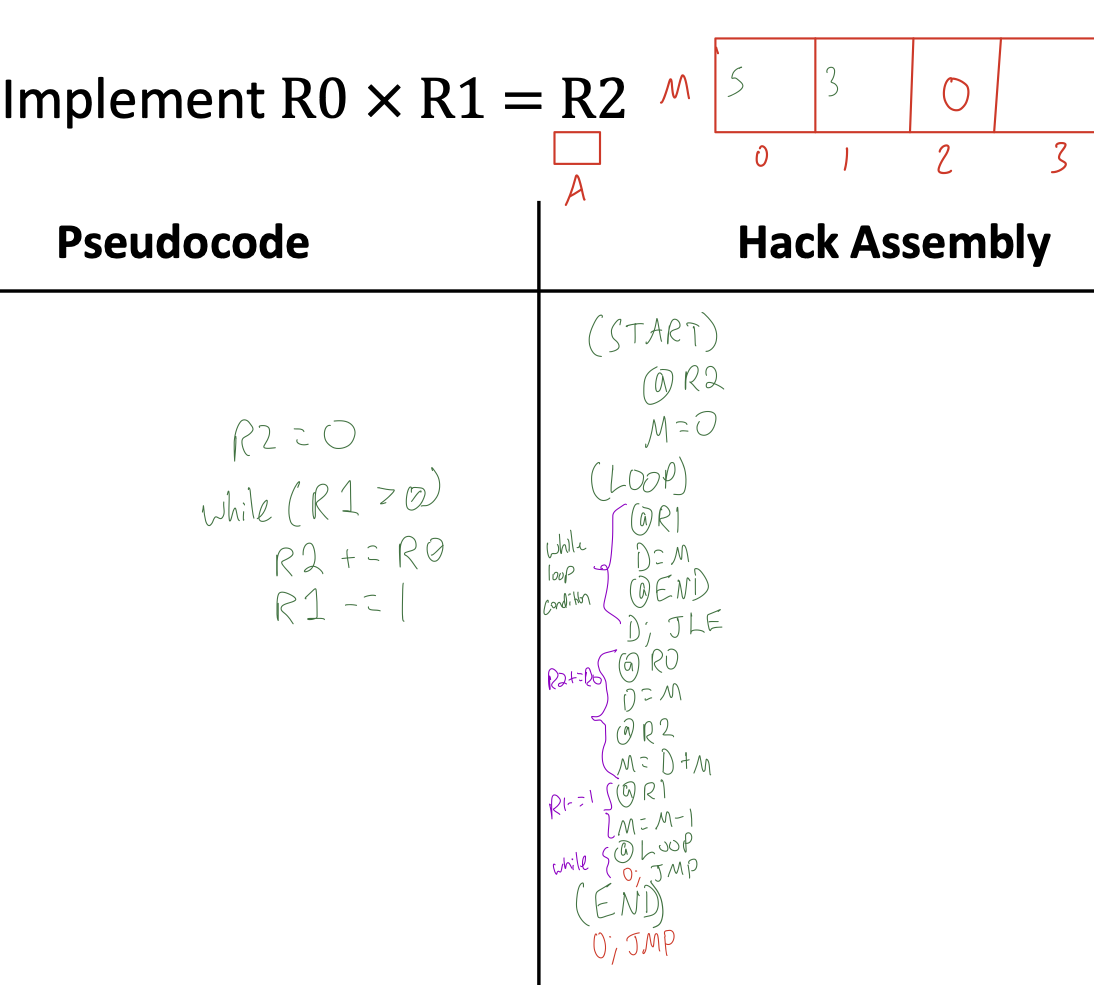 Implement R0 × R1 = R2
M
5 3 0
0 1 2 3
A
Pseudocode
R2 = 0
while (R1 > 0)
R2 += R0
R1 -= 1
Hack Assembly
(START)
@R2
M=0
(LOOP)
while loop condition
@R1
D=M
@END
D; JLE
R2+=R0
@R0
D=M
@R2
M=D+M
R1-=1
@R1
M=M-1
while
@LOOP
0; JMP
(END)
0; JMP